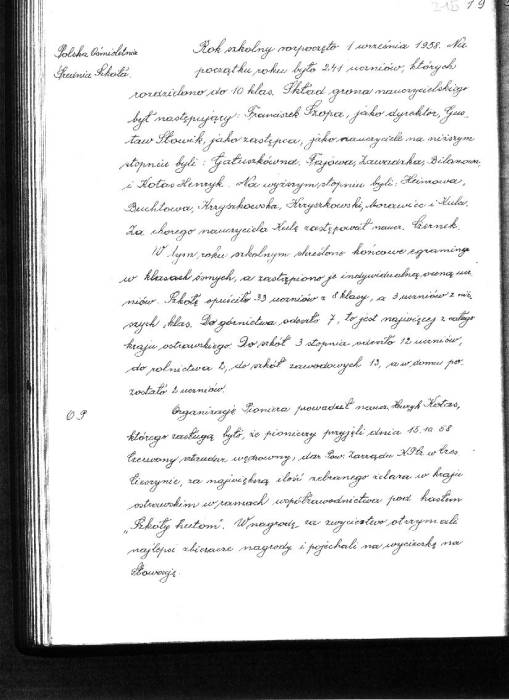 Polska Ośmioletnia
Średnia Szkoła.
Rok szkolny rozpoczęto 1 września 1958. Na
początku roku było 241 uczniów, których
rozdzielono do 10 klas. Skład grona nauczycielskiego
był następujący: Franciszek Szopa, jako dyrektor, Gus-
taw Słowik, jako zastępca, jako nauczyciele na niższym
stopniu byli: Gałuszkówna, Fajowa, Zawadzka,
i Kotas Henryk. Na wyższym stopniu byli: Heimowa,
Buchtowa, Krzyszkowska, Krzyszkowski, Morawiec i Kula.
Za chorego nauczyciela Kulę zastępował naucz. Czernek.
W tym roku szkolnym skreślono końcowe egzaminy
w klasach ósmych, a zastąpiono je indywidualną oceną ucz-
niów. Szkołę opuściło 33 uczniów z 8 klasy, a 3 uczniów z niż-
szych klas. Do górnictwa odeszło 7, to jest najwięcej z całego
kraju ostrawskiego. Do szkół 3 stopnia odeszło 12 uczniów,
do rolnictwa 2, do szkół zawodowych 13, a w domu po-
zostało 2 uczniów.
OP
Organizację Pioniera prowadził naucz. Henryk Kotas,
którego zasługą było, że pionierzy przyjęli dnia 15. 10. 58
czerwony sztandar wędrowny, dar Pow. Zarządu KPCz w Czes.
Cieszynie, za największą ilość zebranego żelaza w kraju
ostrawskim w ramach współzawodnictwa pod hasłem
„Szkoły hutom". W nagrodę za zwycięstwo otrzymali
najlepsi zbieracze nagrody i pojechali na wycieczkę na
Słowację.